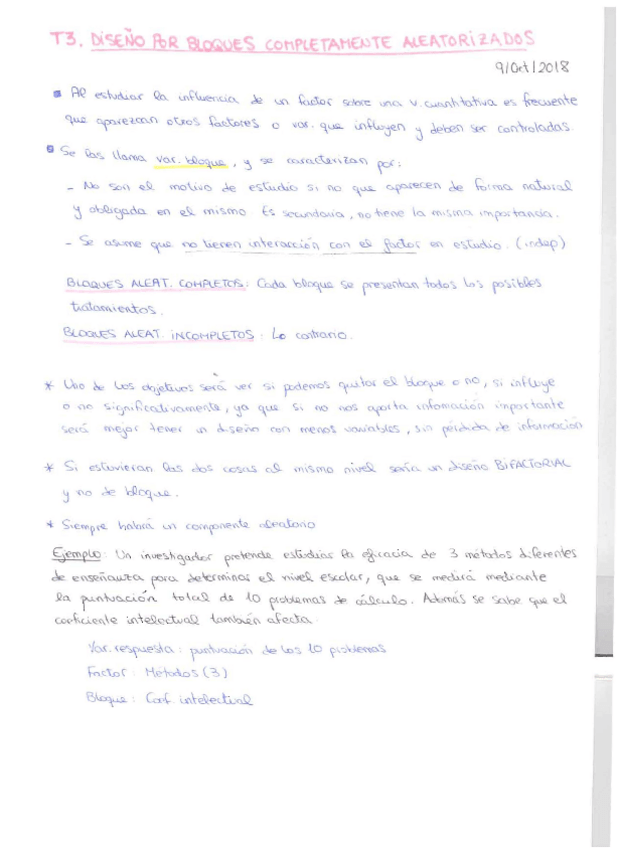 T3. DISEÑO POR BLOQUES COMPLETAMENTE ALEATORIZADOS
9/Oct/2018
Al estudiar la influencia de un factor sobre una v. cuantitativa es frecuente
que aparezcan otros factores o var. que influyen y deben ser controladas.
Se las llama var. bloque, y se caracterizan por:
- No son el motivo de estudio si no que aparecen de forma natural
y obligada en el mismo. Es secundaria, no tiene la misma importancia.
- Se asume que no tienen interacción con el factor en estudio. (indep)
BLOQUES ALEAT. COMPLETOS: Cada bloque se presentan todos los posibles
tratamientos.
BLOQUES ALEAT. INCOMPLETOS: Lo contrario.
* Uno de los objetivos será ver si podemos quitar el bloque o no, si influye
o no significativamente, ya que si no nos aporta información importante
será mejor tener un diseño con menos variables, sin pérdida de información
* Si estuvieran las dos cosas al mismo nivel sería un diseño BIFACTORIAL
y no de bloque.
* Siempre habrá un componente aleatorio
Ejemplo: Un investigador pretende estudiar la eficacia de 3 métodos diferentes
de enseñanza para determinar el nivel escolar, que se medirá mediante
la puntuación total de 10 problemas de cálculo. Además se sabe que el
coeficiente intelectual también afecta.
Var. respuesta: puntuación de los 10 problemas
Factor: Métodos (3)
Bloque: Coef. intelectual